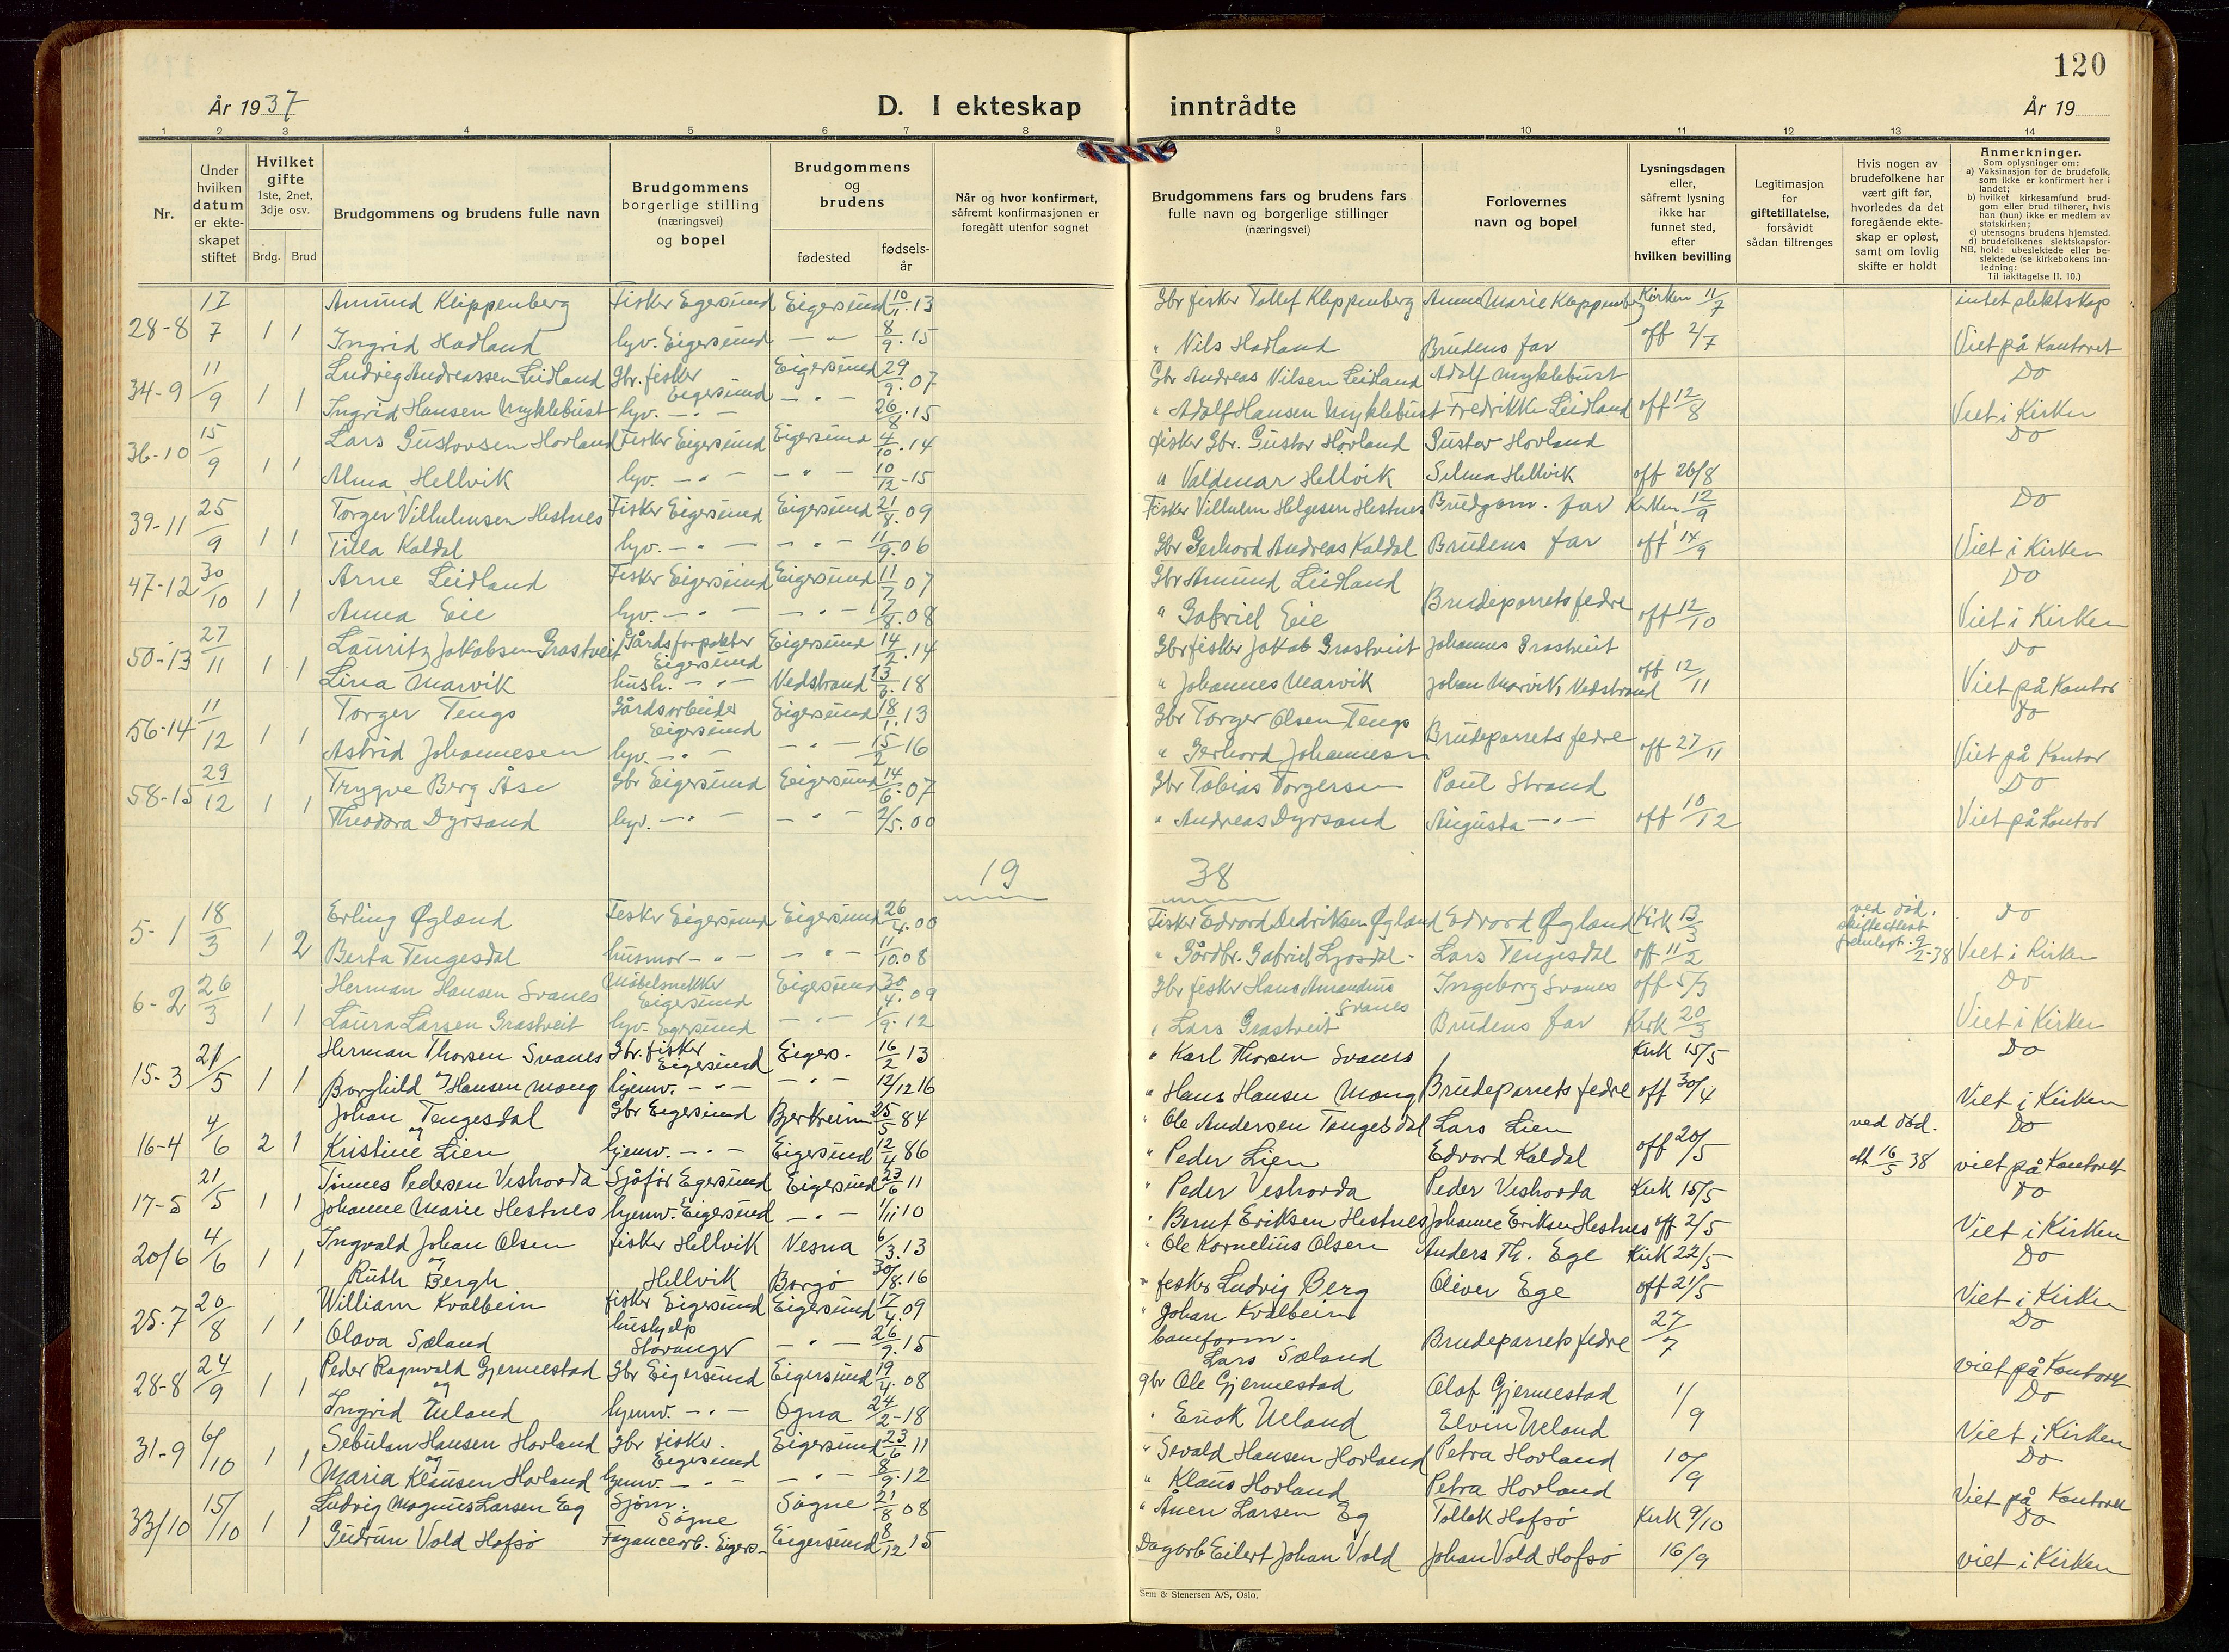 120
År 1937
D. I ekteskap inntrådte
År 19
1 2 3 4 5 6 7 8 9 10 11 12 13 14
Nr.
Under hvilken datum er ekteskapet stiftet
Hvilket gifte 1ste, 2net, 3dje osv.
Brdg. Brud
Brudgommens og brudens fulle navn
Brudgommens borgerlige stilling (næringsvei) og bopel
Brudgommens og brudens
fødested
fødselsår
Når og hvor konfirmert, såfremt konfirmasjonen er foregått utenfor sognet
Brudgommens fars og brudens fars fulle navn og borgerlige stillinger (næringsvei)
Forlovernes navn og bopel
Lysningsdagen eller, såfremt lysning ikke har funnet sted, efter hvilken bevilling
Legitimasjon for giftetillatelse, forsåvidt sådan tiltrenges
Hvis nogen av brudefolkene har vært gift før, hvorledes da det foregående ekteskap er opløst, samt om lovlig skifte er holdt
Anmerkninger.
Som oplysninger om:
a) Vaksinasjon for de brudefolk, som ikke er konfirmert her i landet;
b) hvilket kirkesamfund brudgom eller brud tilhører, hvis han (hun) ikke er medlem av statskirken;
c) utensogns brudens hjemsted.
d) brudefolkenes slektskapsforhold: ubeslektede eller beslektede (se kirkebokens innledning:
NB.
Til iakttagelse II. 10.)
28-8 17/7 1 1 Amund Kleppenberg Fisker Egersund Eigersund 10/11.13 Gbr fisker Tollef Kleppenberg Anne Marie Kleppenberg Kirken 11/7 intet slektskap
Ingrid Hadland hyv. Eigersund - " - 8/9.15 " Nils Hadland Brudens far off 2/7 Viet på Kontoret
34-9 11/9 1 1 Ludvig Andreassen Leidland Gbr. fisker Eigersund Eigersund 29/9.07 Gbr Andreas Nilsen Leidland Adolf Myklebust Do
Ingrid Hansen Myklebust hyv. - " - - " - 26/8.15 " Adolf Hansen Myklebust Fredrikke Leidland off 12/8 Viet i Kirken
36-10 15/9 1 1 Lars Gustavsen Hovland Fisker Eigersund Eigersund 4/10.14 fisker Gbr. Gustav Hovland Gustav Hovland Do
Alma Hellvik hyv. - " - - " - 10/12-15 " Valdemar Hellvik Selma Hellvik off 26/8
39-11 25/9 1 1 Torger Vilhelmsen Hestnes Fisker Eigersund Eigersund 21/8.09 Fisker Vilhelm Helgesen Hestnes Brudgom. far Kirken 12/9 Do
Tilla Kaldal hyv. - " - - " - 11/9.06 Gbr Gerhard Andreas Kaldal Brudens far off 14/9 Viet i Kirken
47-12 30/10 1 1 Arne Leidland Fisker Eigersund Eigersund 11/7 07 Gbr Amund Leidland Brudeparrets fedre Do
Anna Eie hyv. - " - - " - 17/8.08 " Gabriel Eie off 12/10 Viet i Kirken
50-13 27/11 1 1 Lauritz Jakobsen Grastveit Gårdsforpakter Eigersund Eigersund 14/2.14 Gbr fisker Jakob Grastveit Johannes Grastveit Do
Lina Marvik hush. - " - Nedstrand 13/3.18 " Johannes Marvik Johan Marvik, Nedstrand off 12/11 Viet på Kantor
56-14 11/12 1 1 Torger Tengs Gårdsarbeider Eigersund Eigersund 18/1.13 Gbr Torger Olsen Tengs Brudeparrets fedre Do
Astrid Johannesen hyv. - " - - " - 15/2 16 " Gerhard Johannesen off 27/11 Viet på Kontor
58-15 29/12 1 1 Trygve Berg Åse Gbr Eigersund Eigersund 14/6.07 Gbr Tobias Torgersen Paul Strand Do
Theodora Dyrsand hyv. - " - - " - 2/5.00 " Andreas Dyrsand Augusta - " - off 10/12 Viet på Kontor
19 38
5-1 18/3 1 2 Erling Øgland Fisker Eigersund Eigersund 26/4.00 Fisker Edvard Dedriksen Øgland Edvard Øgland Kirk 13/3 ved död. skifteattest fremlagt 9/2-38 Do
Berta Tengesdal husmor - " - - " - 11/10.08 " Gårdbr. Gabriel Ljosdal - Lars Tengesdal off 11/2 Viet i Kirken
6-2 26/3 1 1 Herman Hansen Svanes Møbelsnekker Eigersund Eigersund 30/4.09 Gbr fisker Hans Amandus Svanes Ingeborg Svanes off 5/3 Do
Laura Larsen Grastveit hyv. Egersund - " - 1/9.12 " Lars Grastveit Brudens far Kirk 20/3 Viet i Kirken
15-3 21/5 1 1 Herman Thorsen Svanes Gbr. fisker Eigersund Eigers. 16/2 13 " Karl Thorsen Svanes Kirk 15/5 Do
og Borghild Hansen Mong hjemv. - " - - " - 12/12 16 " Hans Hansen Mong Brudeparrets fedre off 30/4 Viet i Kirken
16-4 4/6 2 1 Johan Tengesdal Gbr Eigersund Bjerkreim 25/5 84 " Ole Andersen Tengesdal Lars Lien ved död. Do
og Kristine Lien hjemv. - " - Eigersund 12/4 86 " Peder Lien Edvard Kaldal off 20/5 att 16/5 38 viet på Kontoret
17-5 21/5 1 1 Tönnes Pedersen Veshovda Sjåför Egersund Eigersund 23/6 11 " Peder Veshovda Peder Veshovda Kirk 15/5 Do
Johanne Marie Hestnes hjemv. Eigersund - " - 1/11 10 " Bernt Eriksen Hestnes Johanne Eriksen Hestnes off 2/5 Viet i Kirken
20/6 4/6 1 1 Ingvald Johan Olsen fisker Hellvik Vesna 6/3.13 " Ole Kornelius Olsen Anders Th. Ege Kirk 22/5 Do
og Ruth Bergh Hellvik Borgö 30/8.16 " fisker Ludvig Berg Oliver Ege off 21/5 Viet i Kirken
25.7 20/8 1 1 William Kvalbein fisker Eigersund Eigersund 17/4.09 " Johan Kvalbein Brudeparrets fedre 27/7 Do
Olava Sæland hushjelp Stavanger - " - 26/9.15 Lars Sæland viet på Kontoret
28-8 24/9 1 1 Peder Ragnvald Gjermestad Gbr Eigersund Eigersund 19/4.08 gbr Ole Gjermestad Olaf Gjermestad 1/9 Do
og Ingrid Ueland hjemv. - " - Ogna 24/2-18 " Enok Ueland Elvin Ueland Viet i Kirken
31-9 6/10 1 1 Sebulan Hansen Hovland Gbr fisker. Eigersund Eigersund 23/6 11 " Sevald Hansen Hovland Petra Hovland 10/9 Do
og Maria Klausen Hovland hjemv. - " - - " - 8/9.12 " Klaus Hovland Petra Hovland Viet på Kontoret
33/10 15/10 1 1 Ludvig Magnus Larsen Eg Sjöm. Sögne Sögne 21/8 08 " Ånen Larsen Eg Tollak Hafsö Kirk 9/10 Do
Gudrun Vold Hafsö Fayancearb. Eigers- Eigersund 8/12 15 Dagarb Eilert Johan Vold Johan Vold Hafsö 16/9 viet i Kirken
Sem & Stenersen A/S, Oslo.